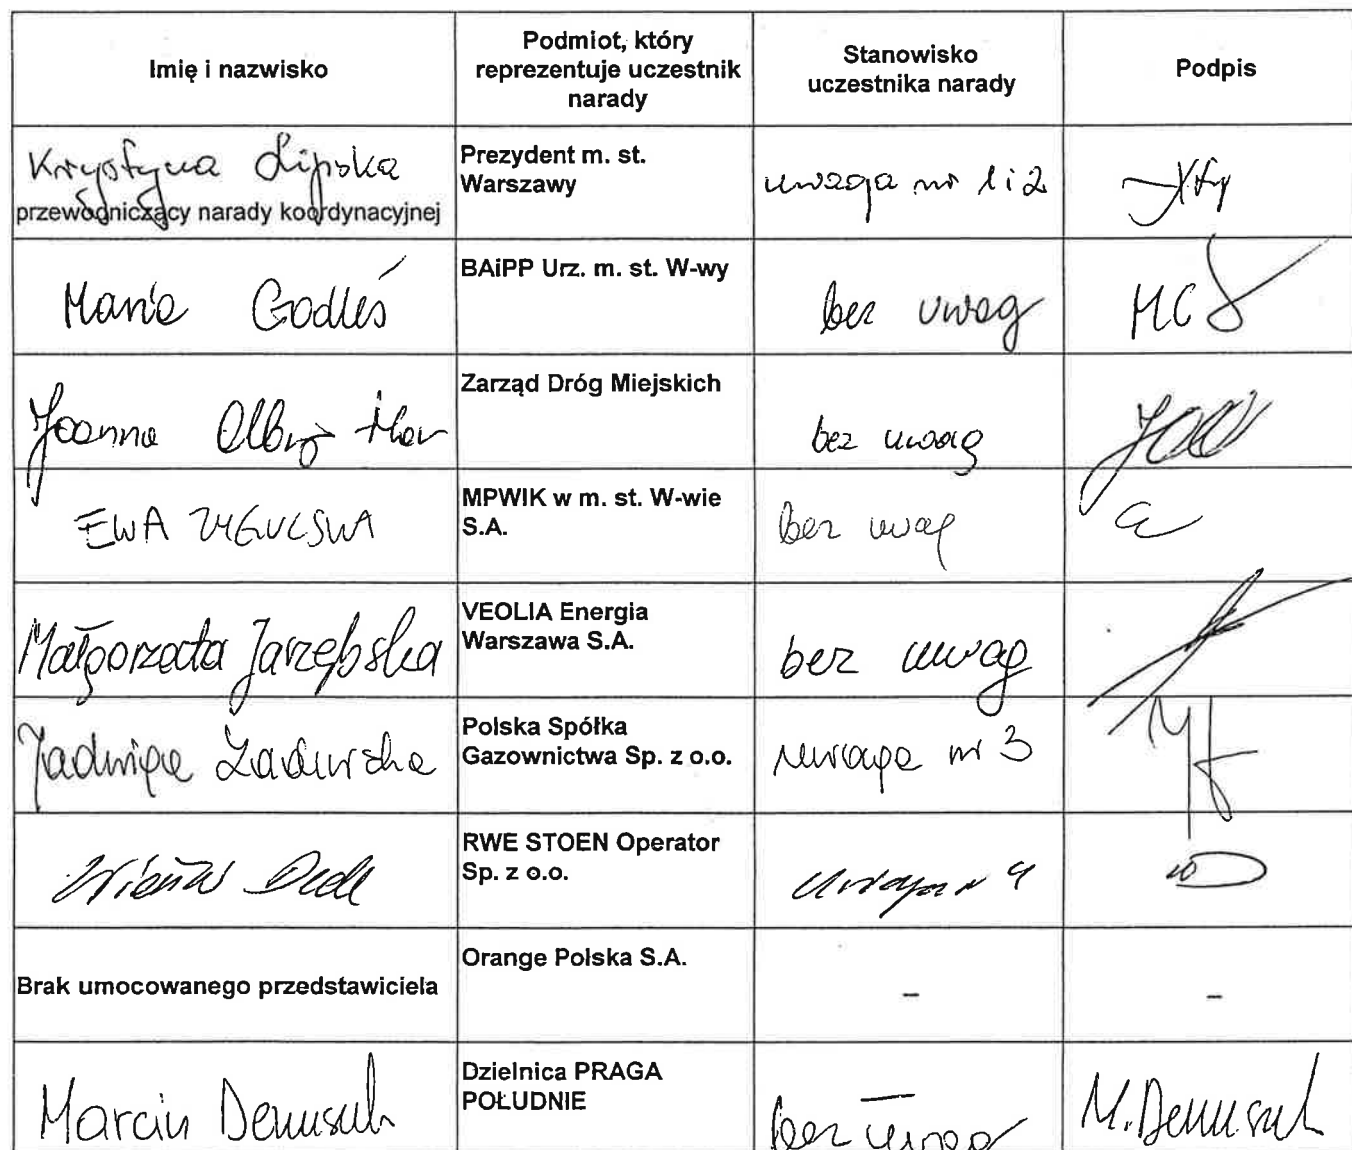 Imię i nazwisko
Podmiot, który
reprezentuje uczestnik
narady
Stanowisko
uczestnika narady
Podpis
Krystyna Lipska
przewodniczący narady koordynacyjnej
Prezydent m. st.
Warszawy
uwaga nr 1 i 2
Maria Godleś
BAiPP Urz. m. st. W-wy
bez uwag
MG
Joanna
Zarząd Dróg Miejskich
bez uwag
EWA
MPWIK w m. st. W-wie
S.A.
bez uwag
Małgorzata Jarzębska
VEOLIA Energia
Warszawa S.A.
bez uwag
Jadwiga
Polska Spółka
Gazownictwa Sp. z o.o.
uwaga nr 3
RWE STOEN Operator
Sp. z o.o.
uwaga n 4
Brak umocowanego przedstawiciela
Orange Polska S.A.
–
–
Marcin
Dzielnica PRAGA
POŁUDNIE
bez uwag